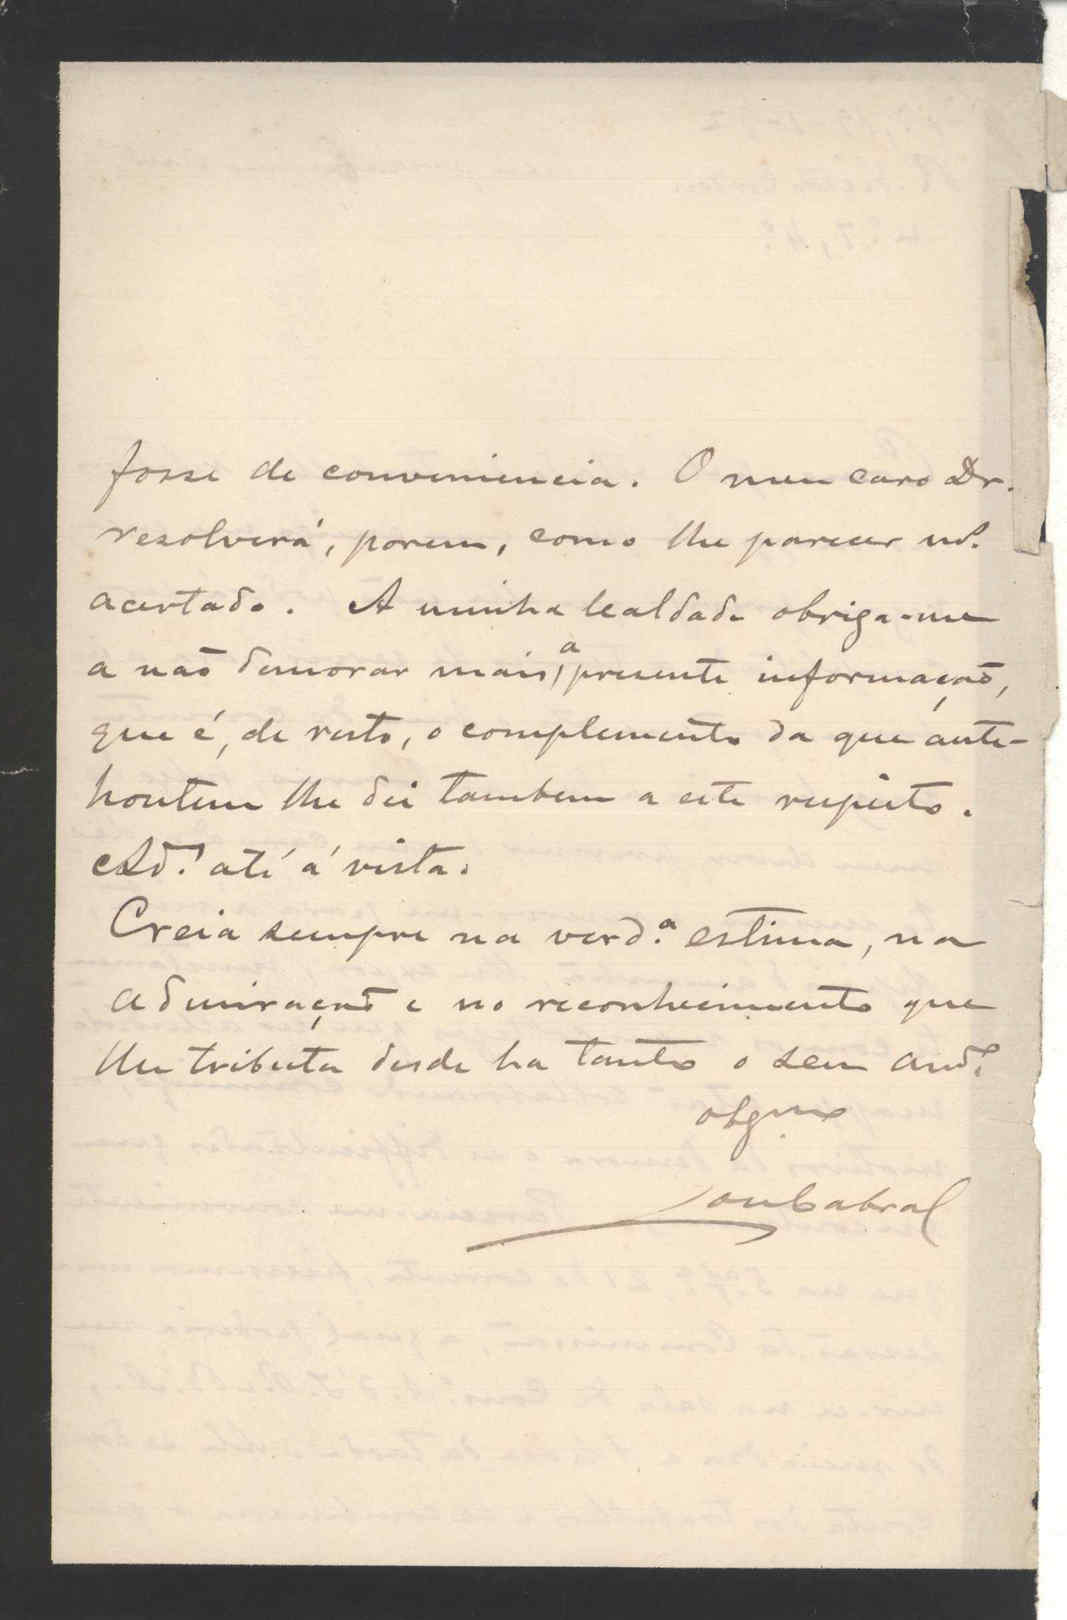 fosse de conveniencia. O meu caro Dr.
resolverá, porem, como lhe parecer
acertado. A minha lealdade obriga-me
a não demorar mais a presente informação,
que é, de resto, o complemento da que ante-
hontem lhe dei tambem a este respeito.
Ad.s até á vista.
Creia sempre na verd.a estima, na
admiração e no reconhecimento que
lhe tributa desde ha tanto o seu am.o
obgmo
Cabral